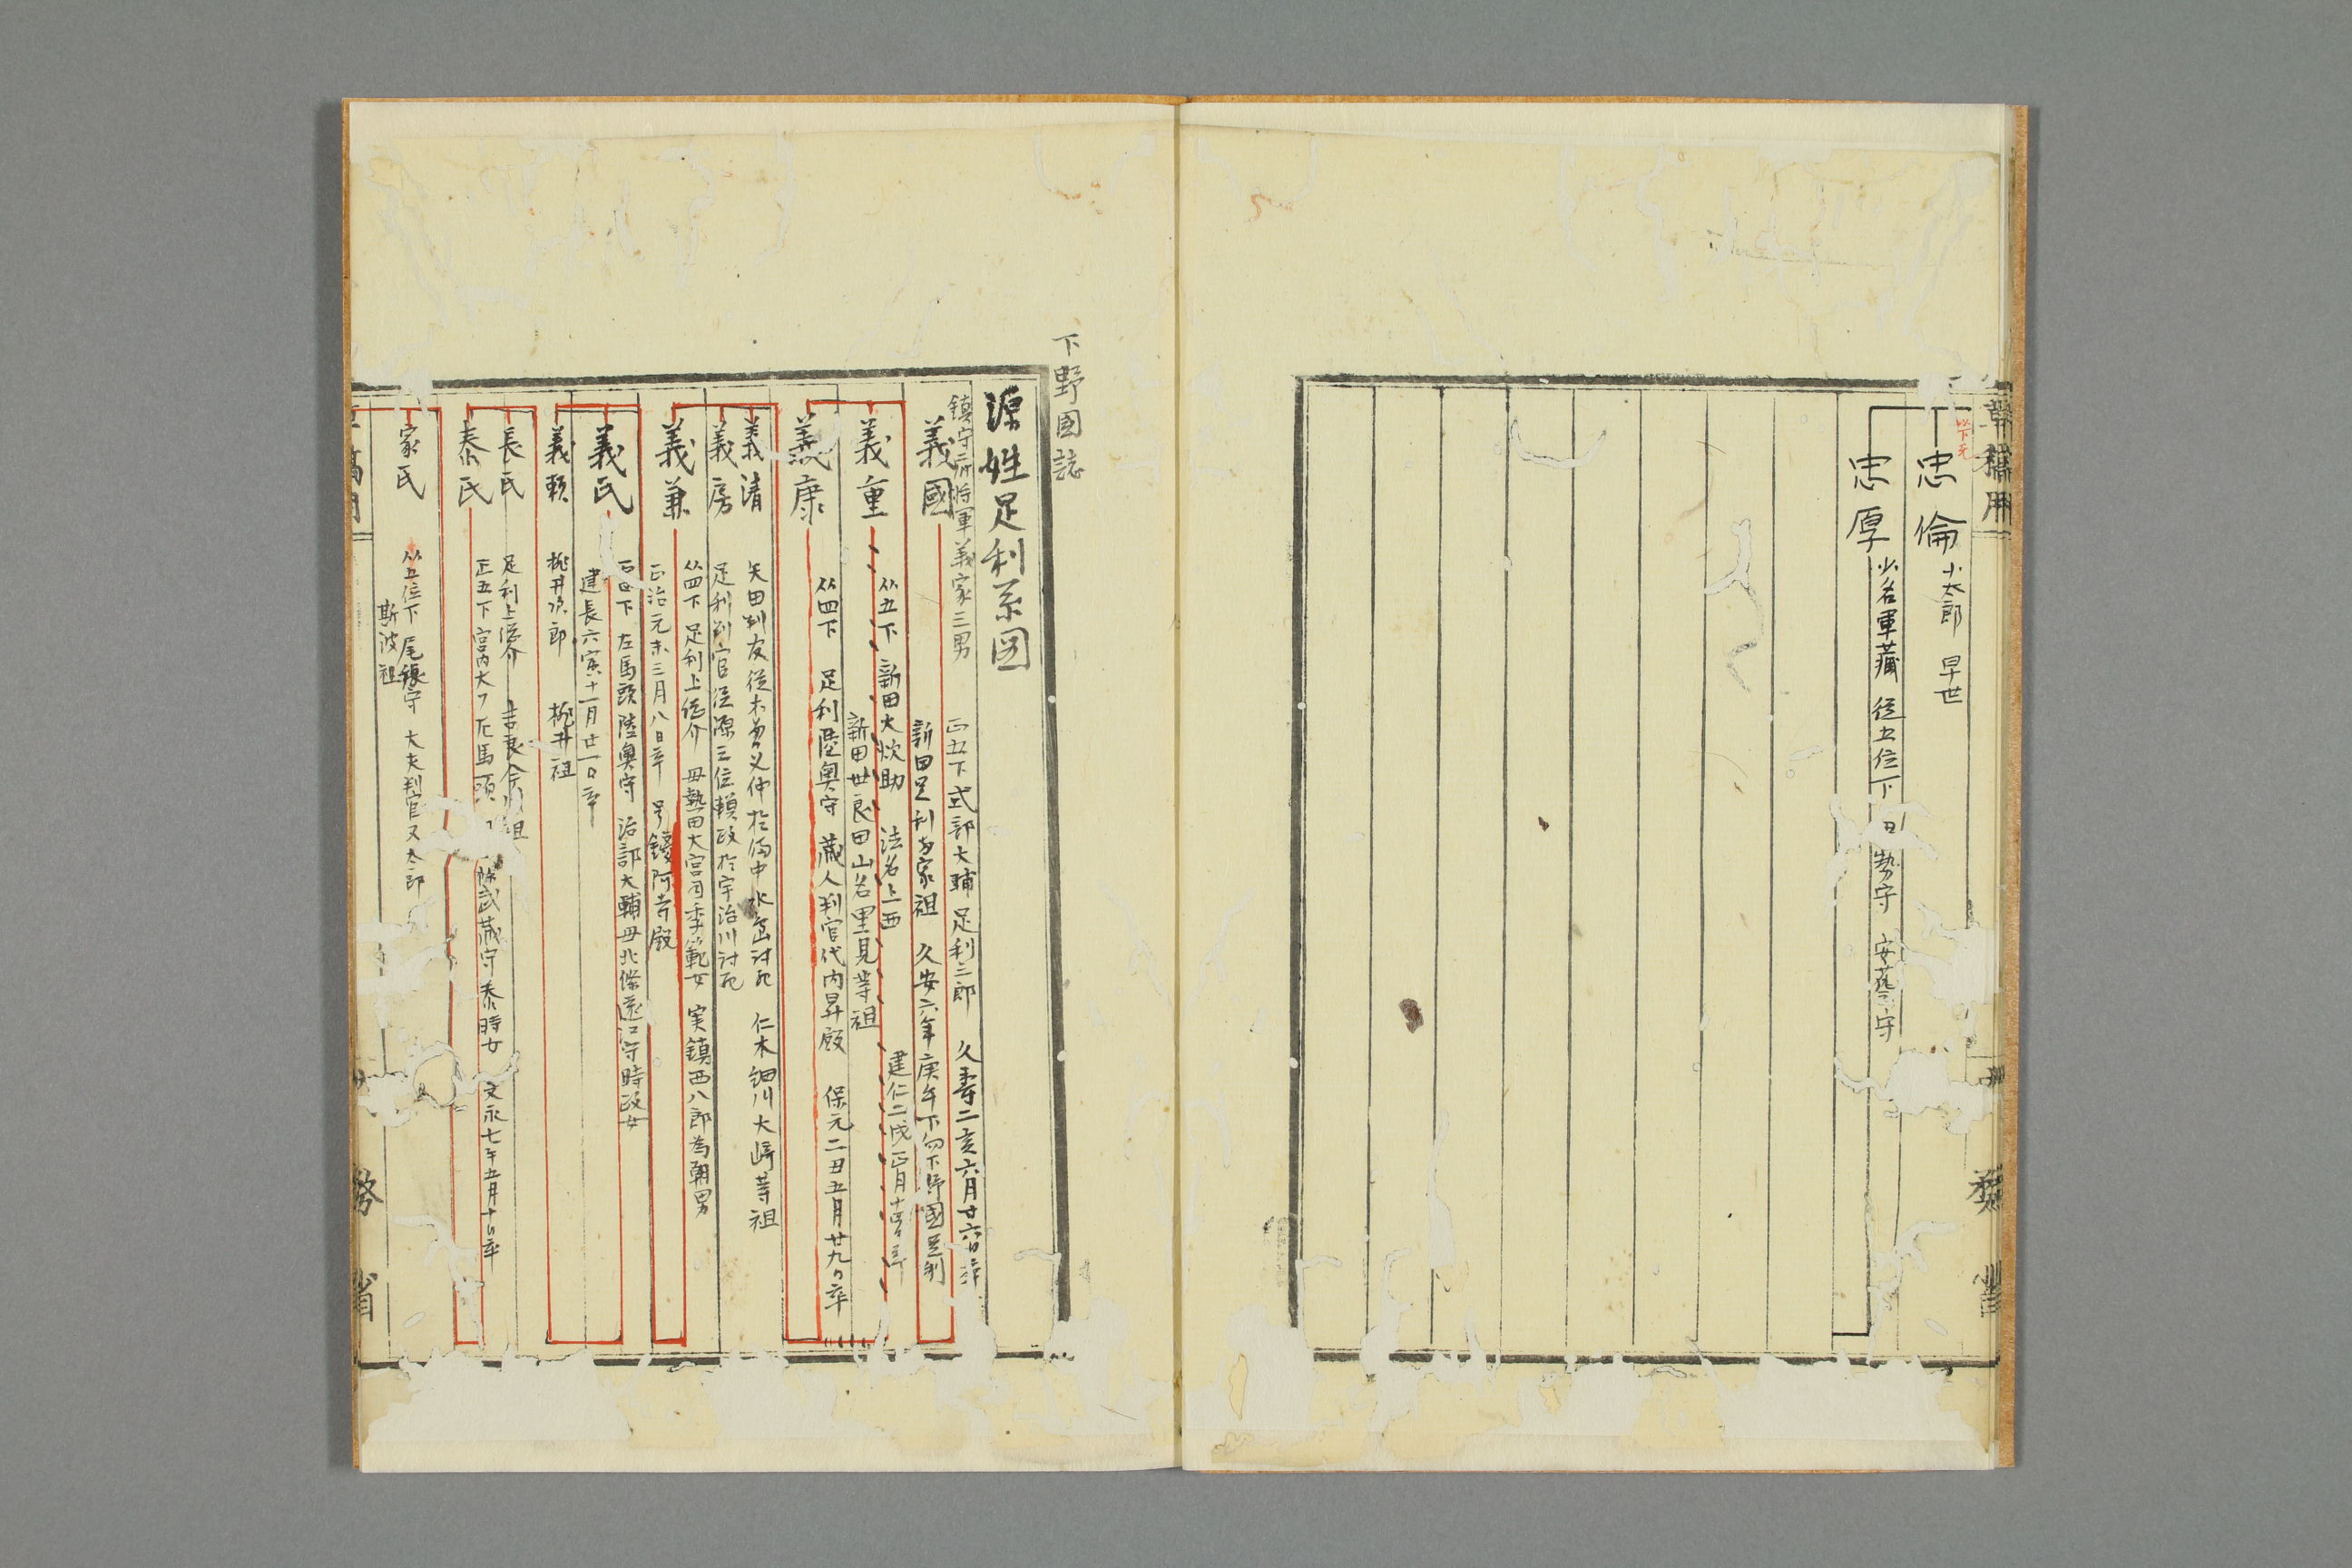 草稿用
以下元
忠倫 小太郎 早世
忠厚 少名軍蔵 従五位下 勢守 安藝守
務省
下野國誌
源姓足利系図
鎮守府将軍義家三男
義國 正五下式部大輔足利二郎 久寿二亥六月廿六日卒
新田足利両家祖 久安六年庚午下向下野國足利
義重 从五下 新田大炊助 法名上西 建仁二戌正月十四日卒
新田世良田山名里見等祖
義康 从四下 足利陸奥守 蔵人判官代内昇殿 保元二丑五月廿九日卒
義清 矢田判友従木曽义仲於備中水島討死 仁木細川大崎等祖
義房 足利判官従源三位頼政於宇治川討死
義兼 从四下 足利上総介 母熱田大宮司季範女 実鎮西八郎為朝男
正治元未三月八日卒 号鑁阿寺殿
義氏 正四下 左馬頭陸奥守 治部大輔母北條遠江守時政女
建長六寅十一月廿一日卒
義頼 桃井次郎 桃井祖
長氏 足利上総介 吉良今川祖
泰氏 正五下宮内大丞左馬頭 武蔵守泰時女 文永七午五月十日卒
家氏 从五位下 尾張守 大夫判官又太郎
斯波祖
草稿用
務省